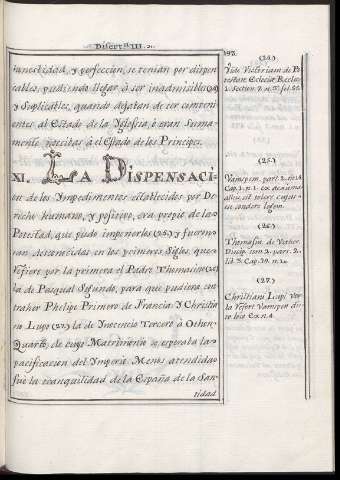 Disert.ⁿ III.
193.
honestidad, y perfeccion, se tenian por dispen-
cables, pudiendo llegar à ser inadmisibles (24)
y Suplicables, quando dejaban de ser combenien-
tes al Estado de la Yglesia, ò eran suma-
mente nocibas à el Estado de los Principes.
XI. LA DISPENSACI-
on de los Impedimentos establecidos por De-
recho humano, y positivo, era propio de la
Potestad, que pudo imponerlos (25) y fueron
desconocidas en los primeros Siglos, que
refiere por la primera el Padre Thomasino (26)
la de Pasqual Segundo, para que pudiera con-
traher Phelipe Primero de Francia: y Christia-
no Lupo (27) la de Inocencio Tercero à Othon
Quarto, de cuyo Matrimonio se esperaba la
pacificacion del Imperio. Menos atendida
fue la tranquilidad de la España de la San-
tidad
(24.)
Vide Victoriam de Po-
testate Eclesiæ Relect.
(25.)
Vanespem. part. 2. tit. 14
Cap. 1. n. 1.
(26.)
Thomasin. de Veter.
Discip. tom. 2. part. 2.
lib. 3. Cap. 29. n. 10.
(27.)
Christiani Lupi Ver-
ba Refert Vanespen dic-
to loco Ex n. 4.